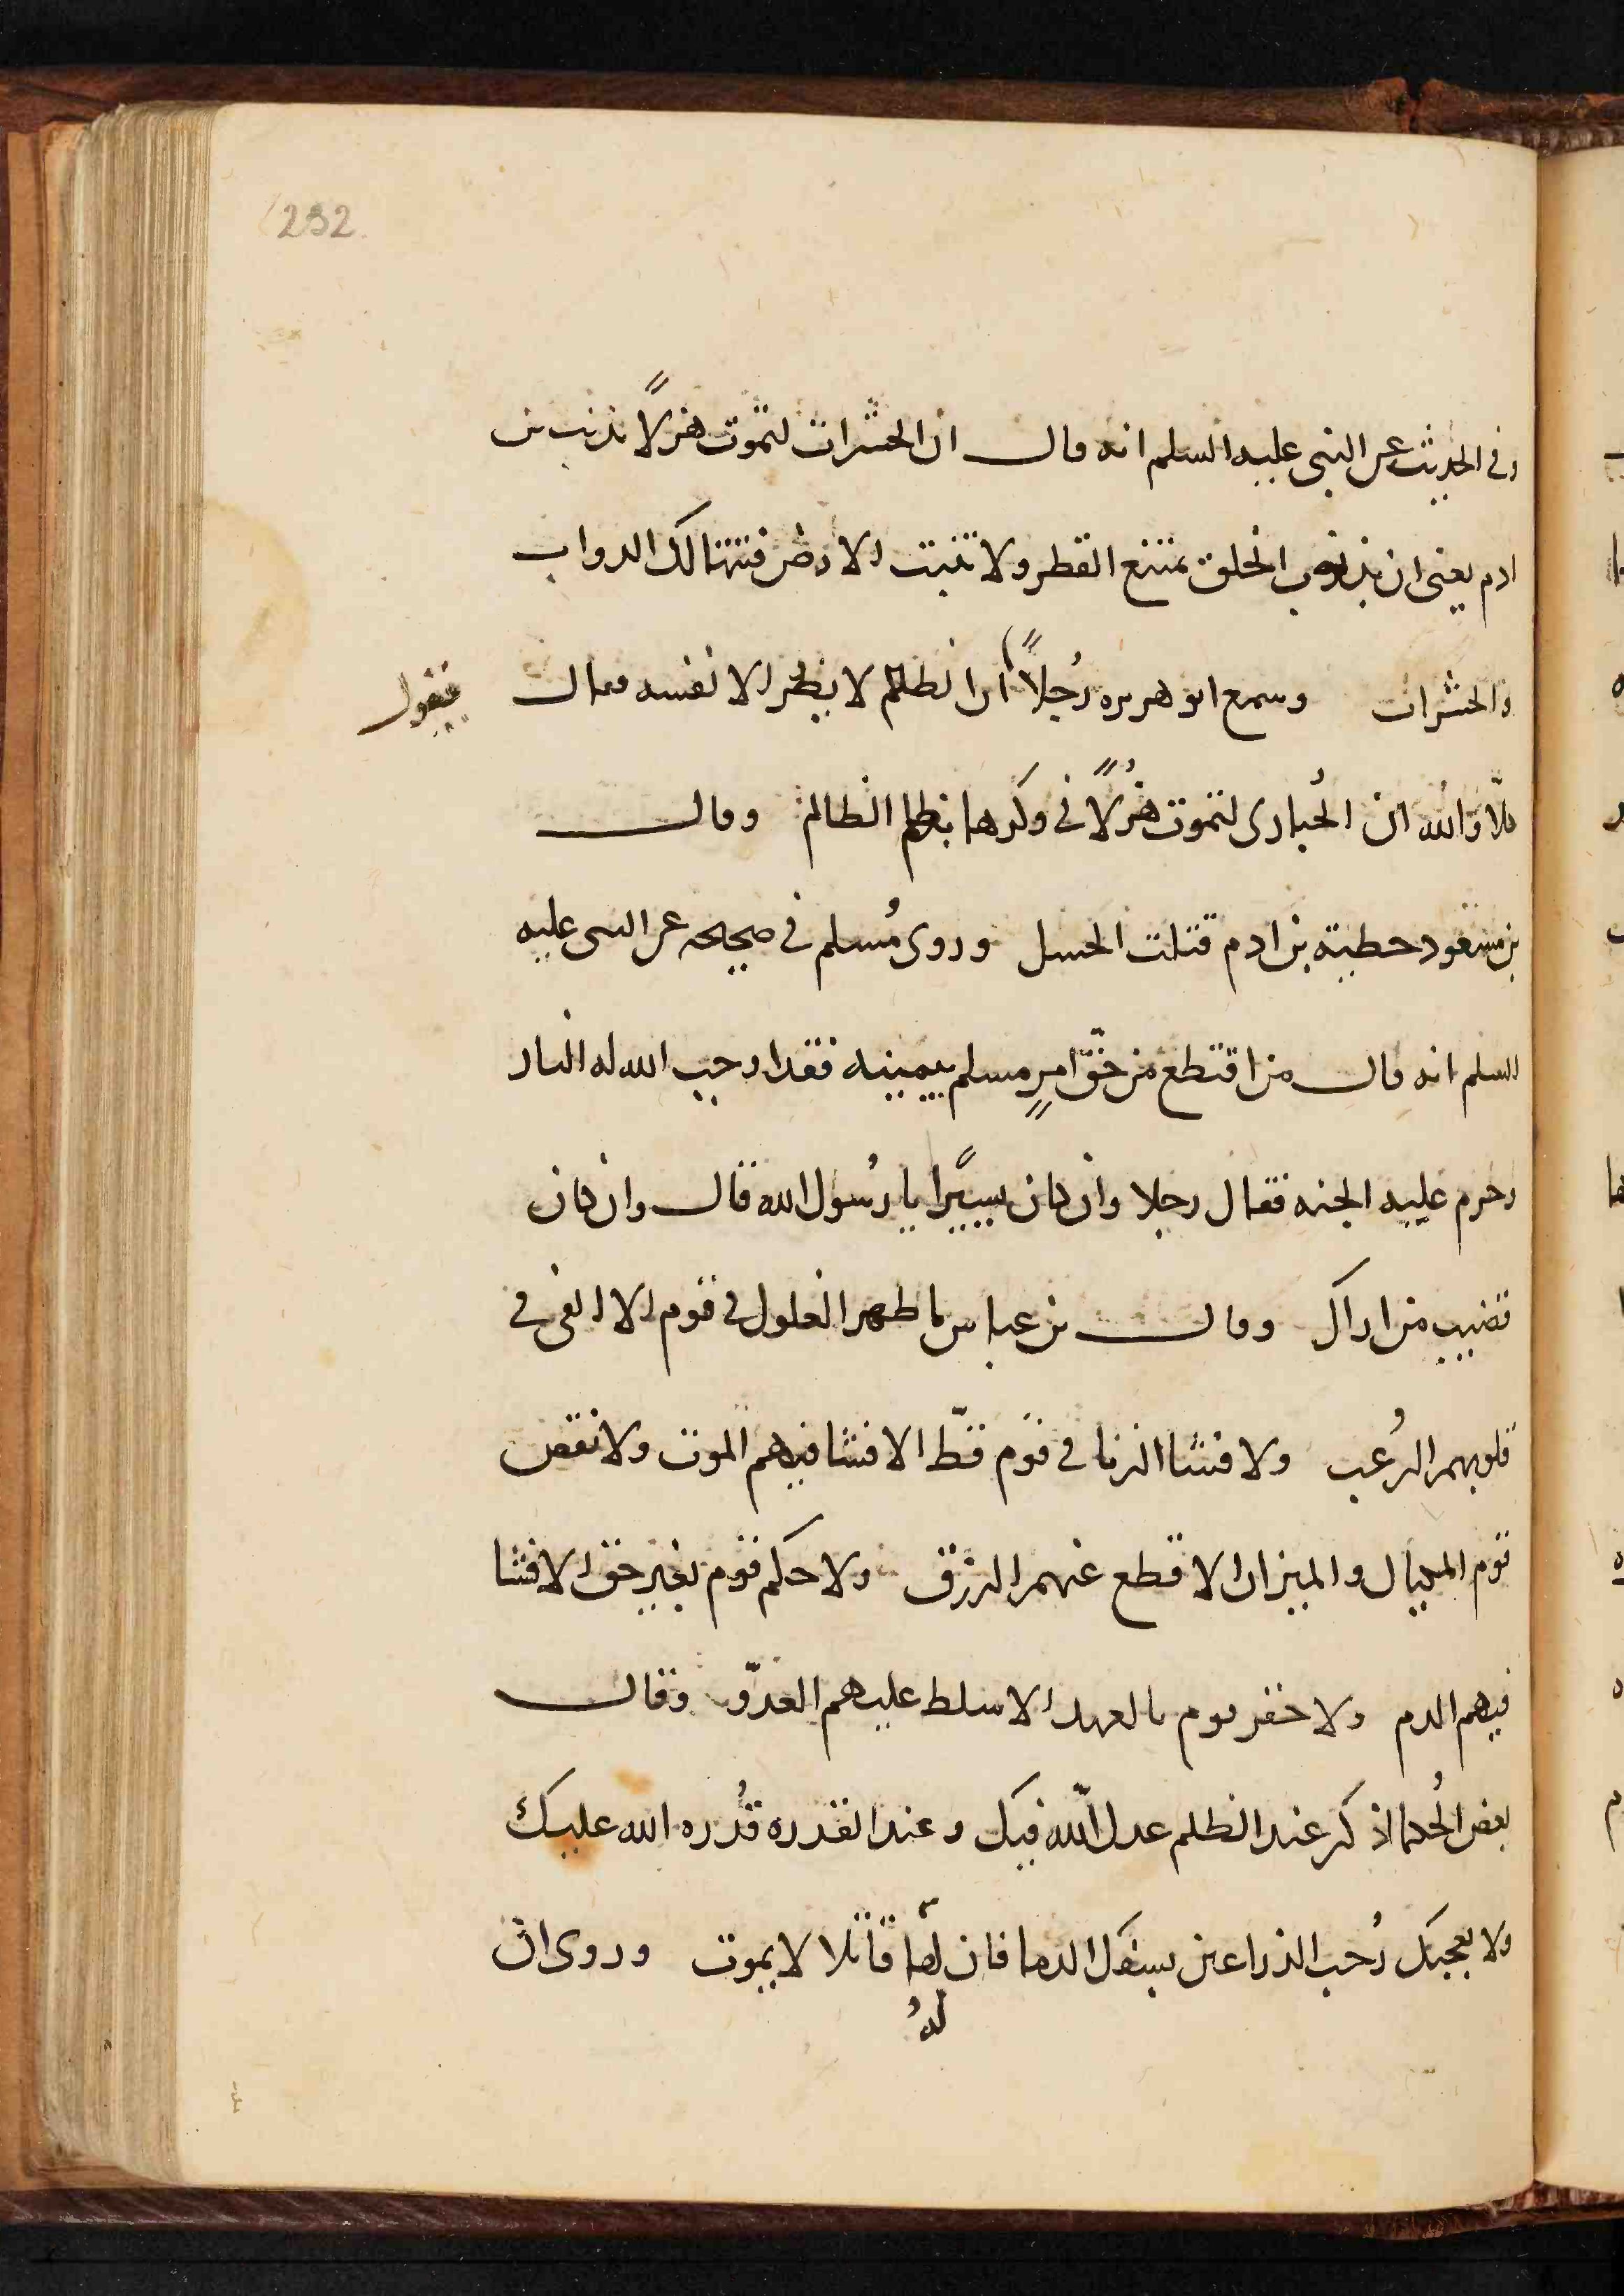 232
وفي الحديث عن النبي عليه السلم انه قال ان الحشرات لتموت هزلًا بذنب بن
ادم يعني ان بذنوب الخلق يمتنع القطر ولا تنبت الارض فتتهالك الدواب
والحشرات وسمع ابو هريره رُجلاً ان الظالم لا يضر الا نفسه فقال
فيقول
كلّا والله ان الحُبارى لتموت هُزلًا في وكرها بظلم الظالم وقال
بن مسعود خطية بن ادم قتلت الحسل وروى مُسلم في صحيحه عن النبي عليه
السلم انه قال من اقتطع من حقّ امرٍ مسلم بيمينه فقد اوجب الله له النار
وحرم عليه الجنه فقال رجلا وان كان يسيًرا يا رسُول الله قال وان كان
قضيب من اراك وقال بن عباس ما ظهر الغلول في قوم الا القي في
قلوبهم الرُعب ولا فشا الزنا في قوم قطّ الا فشا فيهم الموت ولا نقص
قوم المكيال والميزان الا قطع عنهم الرزق ولا حكم قوم بغير حق الا فشا
فيهم الدم ولا خفر قوم بالعهد الا سلط عليهم العدوّ وقال
بعض الحُكما اذكر عند الظلم عدل اللّه فيك وعند القدره قُدره الله عليك
ولا يعجبك رُحب الذراعين يسفك الدما فان لها قاتلا لا يموت وروى ان
لهُ